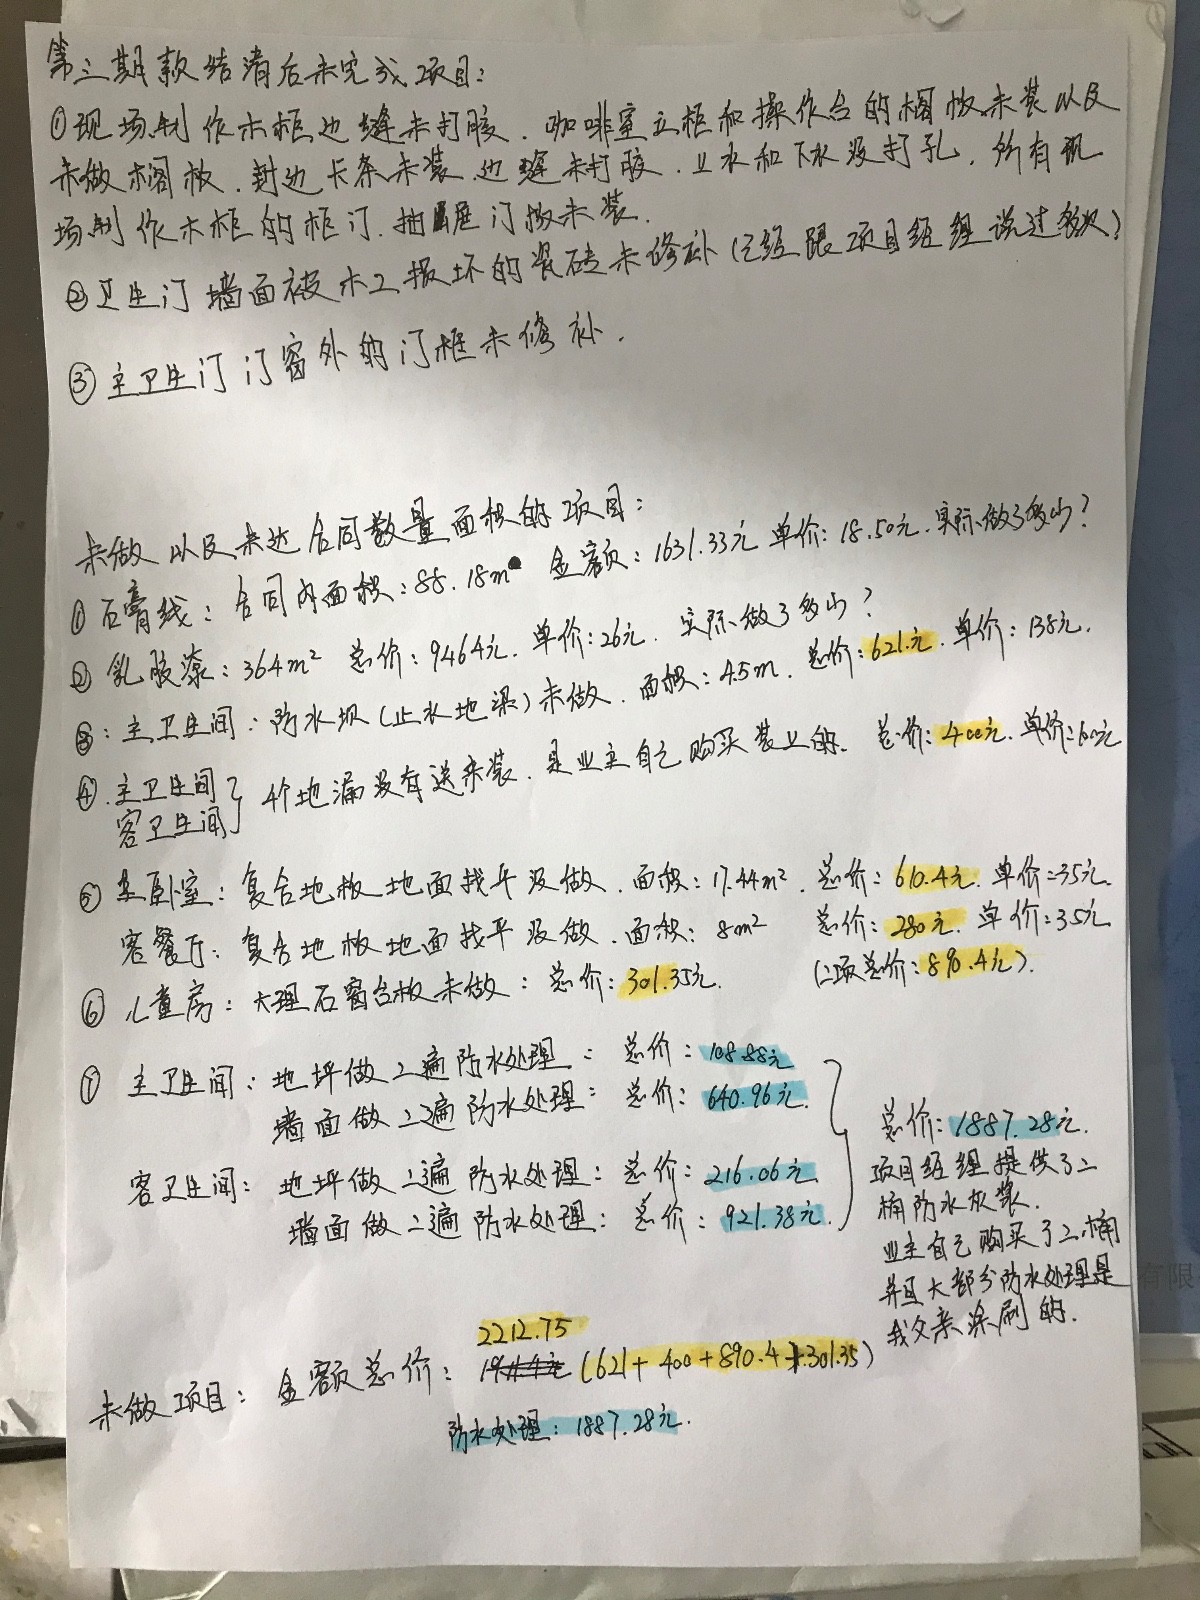 第三期款结清后未完成项目：
①现场制作木柜边缝未打胶．咖啡室立柜和操作台的搁板未装以及
未做搁板．封边卡条未装．边缝未打胶．上水和下水没打孔．所有现
场制作木柜的柜门．抽屉门板未装．
②卫生门墙面被木工损坏的瓷砖未修补（已经跟项目经理说过多次）
③主卫生门门窗外的门框未修补．
未做以及未达合同数量面积的项目：
①石膏线：合同内面积：88.18m 金额：1631.33元 单价：18.50元．实际做了多少？
②乳胶漆：364m² 总价：9464元．单价：26元．实际做了多少？
③：主卫生间：防水坝（止水地梁）未做．面积：4.5m．总价：621元．单价：138元．
④．主卫生间
客卫生间
4个地漏没有送来装．是业主自己购买装上的．总价：400元．单价：100元
⑤主卧室：复合地板地面找平没做．面积：17.44m²．总价：610.4元．单价：35元．
客餐厅：复合地板地面找平没做．面积：8m² 总价：280元．单价：35元
（二项总价：890.4元）．
⑥儿童房：大理石窗台板未做：总价：301.35元．
⑦主卫生间：地坪做二遍防水处理：总价：108.88元
墙面做二遍防水处理：总价：640.96元．
客卫生间：地坪做二遍防水处理：总价：216.06元
墙面做二遍防水处理：总价：921.38元．
总价：1887.28元．
项目经理提供了二
桶防水灰浆．
业主自己购买了二桶
并且大部分防水处理是
我父亲涂刷的．
有限
2212.75
未做项目：金额总价：（621+400+890.4+301.35）
防水处理：1887.28元．